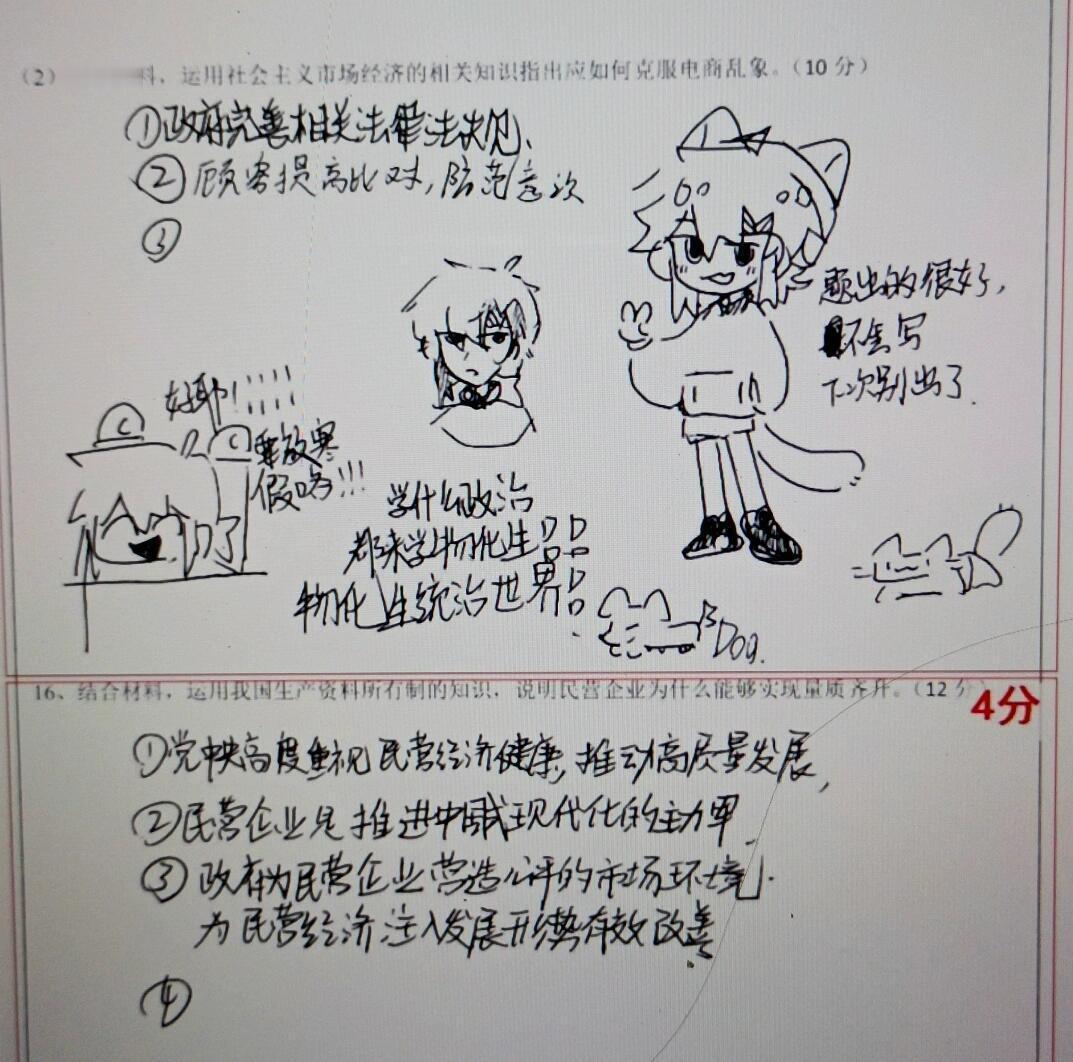 （2） 料，运用社会主义市场经济的相关知识指出应如何克服电商乱象。（10 分）
①政府完善相关法律法规、
②顾客提高比对，防范意次
③
题出的很好，
不会写
下次别出了.
好耶！！！！！
要放寒
假咯！！！
学什么政治
都来学物化生
物化生统治世界
Dog.
16、结合材料，运用我国生产资料所有制的知识，说明民营企业为什么能够实现量质齐升。（12 分
4分
①党中央高度重视民营经济健康，推动高质量发展，
②民营企业是推进中国式现代化的主力军.
③政府为民营企业营造公平的市场环境.
为民营经济注入发展形势有效改善.
④